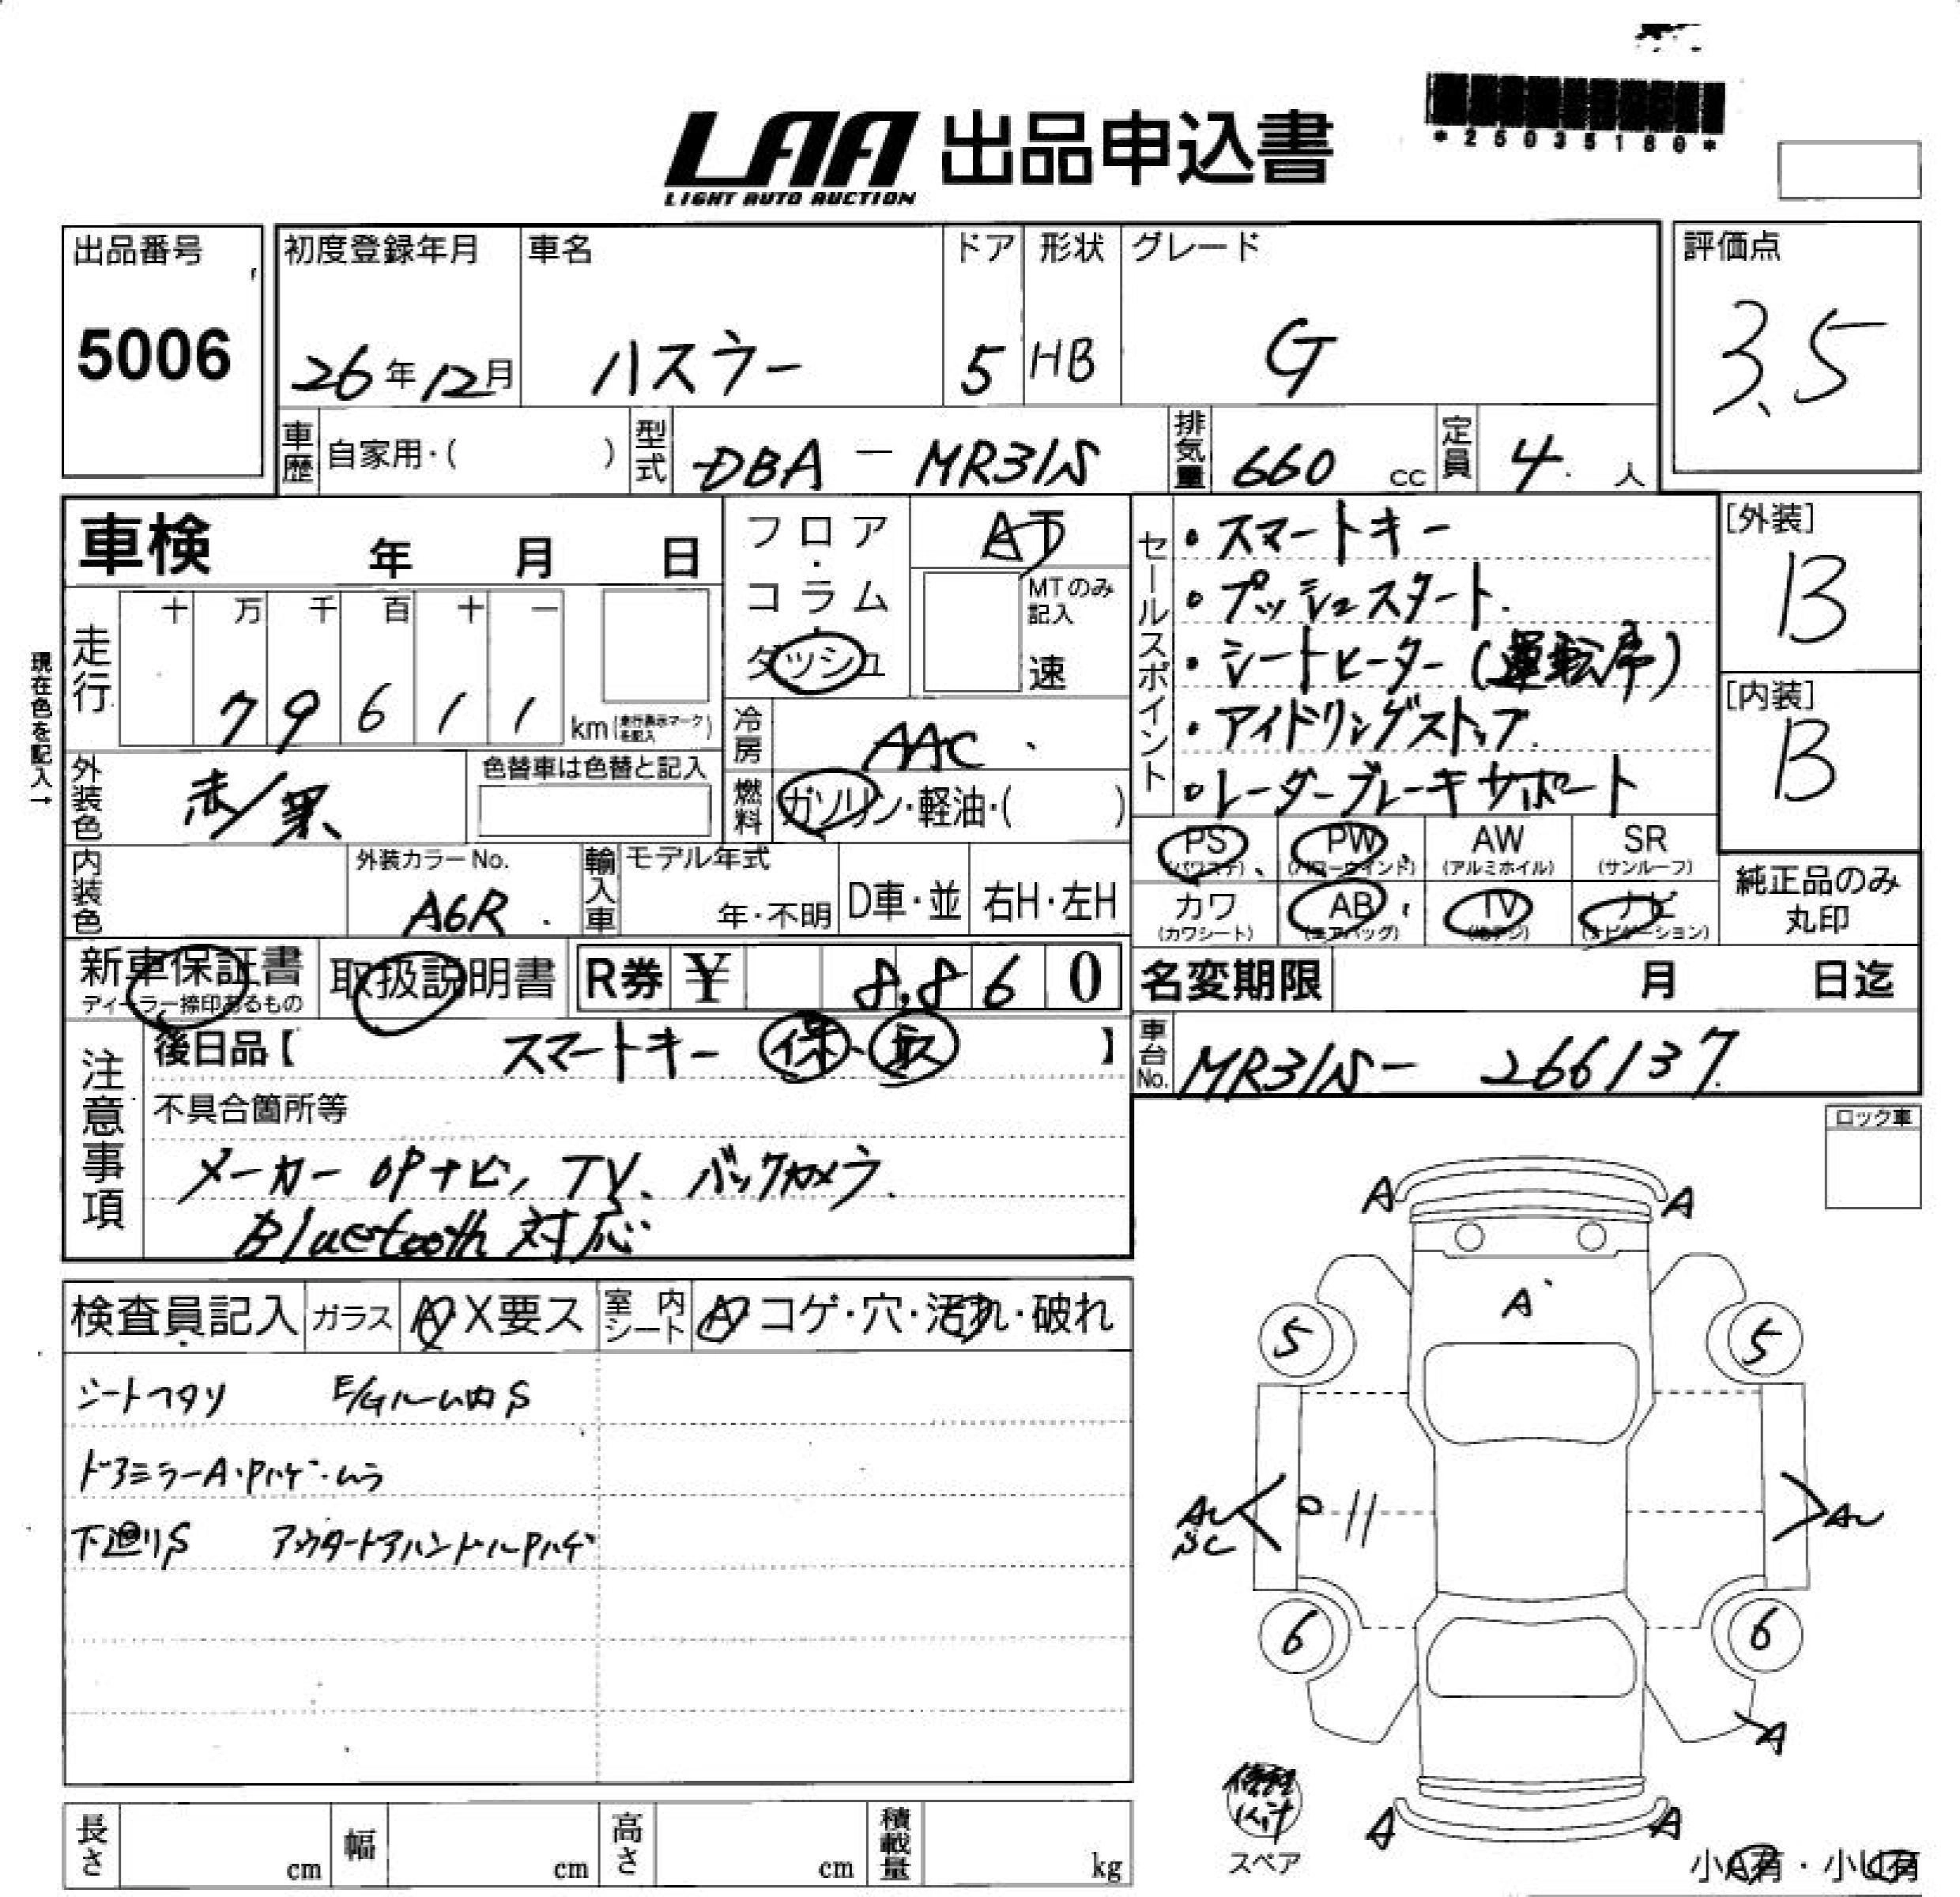 *25035180*
LAA 出品申込書
LIGHT AUTO AUCTION
出品番号 5006
初度登録年月 26年12月
車名 ハスラー
ドア 5
形状 HB
グレード G
評価点 3.5
車歴 自家用・( )
型式 DBA-MR31S
排気量 660 cc
定員 4 人
車検 年 月 日
フロア・コラム・ダッシュ
AT
MTのみ記入 速
セールスポイント
・スマートキー
・プッシュスタート.
・シートヒーター(運転席)
・アイドリングストップ.
・レーダーブレーキサポート
[外装] B
[内装] B
現在色を記入→
走行 十 万 千 百 十 一
79611 km (走行表示マークを記入)
冷房 AAC
燃料 ガソリン・軽油・( )
外装色 赤/黒
色替車は色替と記入
内装色
外装カラーNo. A6R
輸入車 モデル年式 年・不明
D車・並 右H・左H
PS (パワステ) PW (パワーウインド) AW (アルミホイル) SR (サンルーフ)
カワ (カワシート) AB (エアバッグ) TV (地デジ) ナビ (ナビゲーション)
純正品のみ丸印
新車保証書 ディーラー捺印あるもの
取扱説明書
R券 ¥ 8,860
名変期限 月 日迄
車台No. MR31S-266137
注意事項
後日品【 スマートキー 保、取 】
不具合箇所等
メーカーOPナビ, TV、バックカメラ.
Bluetooth対応
ロック車
検査員記入 ガラス A・X要ス 室内シート A・コゲ・穴・汚れ・破れ
シートヘタリ E/Gルーム内S
ドアミラーA・Pハゲ・ムラ
下廻りS アウタードアハンドルPハゲ
A A
A
5 5
AU
SC
AU
6 6
A
A A
スペア
小A有・小U有
長さ cm 幅 cm 高さ cm 積載量 kg